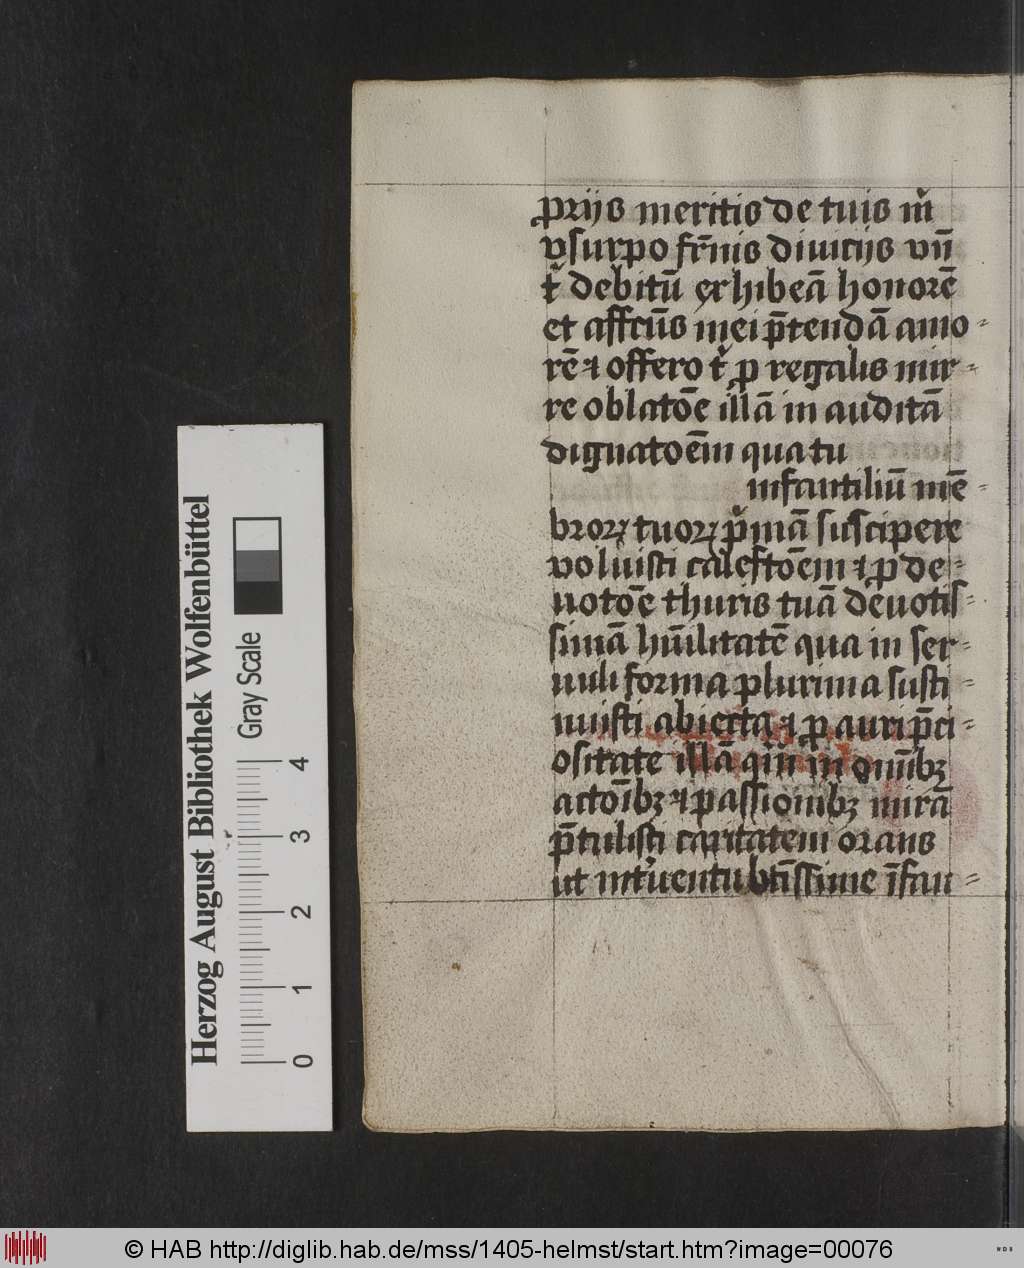 ꝓprijs meritis de tuis m̉
vsurpo fr̄nis diuicijs vn̄
t̉ debitū exhibeā honorē
et affcūs mei p̄tendā amo-
rē ⁊ offero t̉ ꝓ regalis mir-
re oblatōe illā in auditā
dignatoēm qua tu
infantiliū mē-
broꝝ tuoꝝ p̉mā suscipere
voluisti calefcōem ⁊ ꝓ de-
uotōe thuris tuā deuotis-
simā hūilitatē qua in ser-
uuli forma plurima susti-
nuisti abiecta ⁊ ꝓ auri p̄ci-
ositate illā qm̄ in omībꝫ
actoībꝫ ⁊ passionibꝫ mirā
p̄tulisti caritatem orans
ut int̉uentu btīssime īfan-
Herzog August Bibliothek Wolfenbüttel
Gray Scale
0 1 2 3 4
© HAB http://diglib.hab.de/mss/1405-helmst/start.htm?image=00076